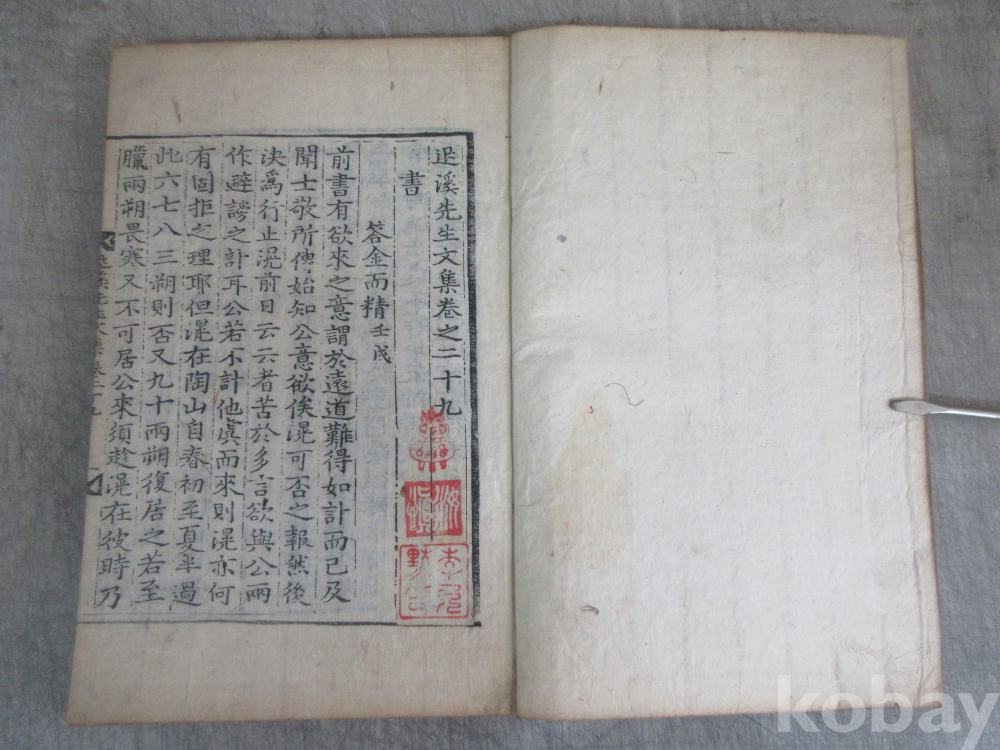 退溪先生文集卷之二十九
書
答金而精 壬戌
前書有欲來之意謂於遠道難得如計而已及
聞士敬所傳始知公意欲俟滉可否之報然後
決爲行止滉前日云云者苦於多言欲與公兩
作避謗之計耳公若不計他虞而來則滉亦何
有固拒之理耶但滉在陶山自春初至夏半過
此六七八三朔則否又九十兩朔復居之若至
臘兩朔畏寒又不可居公來須趁滉在彼時乃
退溪先生文集卷二十九
kobay